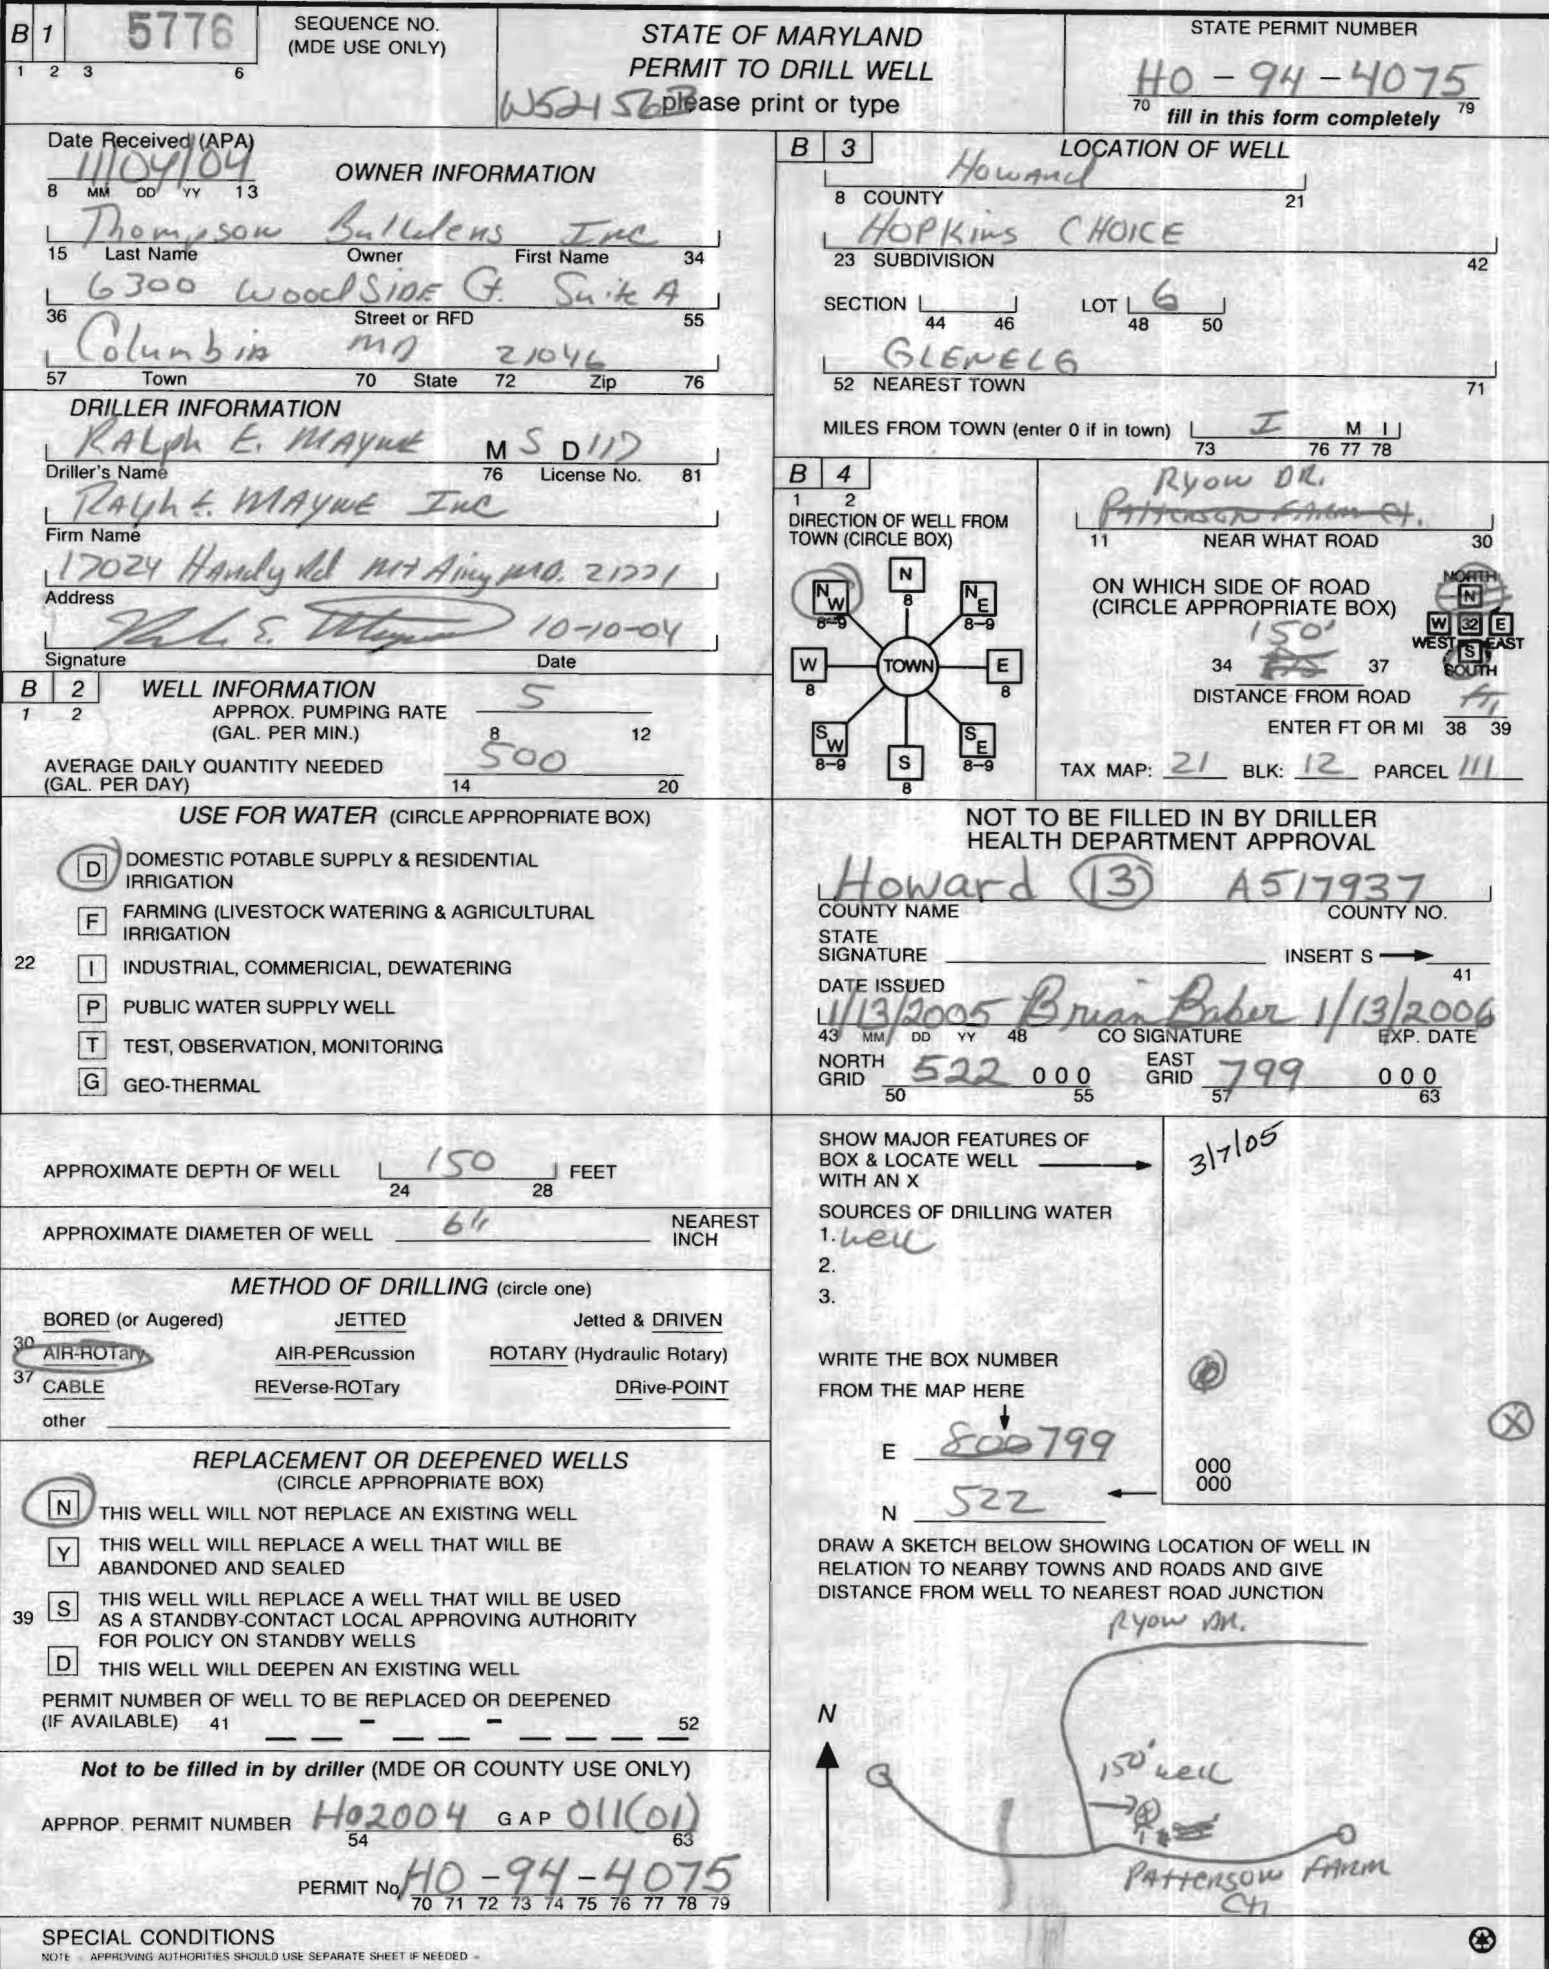 B 1 5776
1 2 3 6
SEQUENCE NO.
(MDE USE ONLY)
STATE OF MARYLAND
PERMIT TO DRILL WELL
W52156B please print or type
STATE PERMIT NUMBER
HO - 94 - 4075
70 79
fill in this form completely
Date Received (APA)
11/04/04
8 MM DD YY 13
OWNER INFORMATION
Thompson Builders Inc
15 Last Name Owner First Name 34
6300 WoodSIDE Ct. Suite A
36 Street or RFD 55
Columbia MD 21046
57 Town 70 State 72 Zip 76
DRILLER INFORMATION
RALph E. MAYNE M S D 117
Driller's Name 76 License No. 81
RALph E. MAYNE Inc
Firm Name
17024 Handy Rd Mt Airy MD. 21771
Address
10-10-04
Signature Date
B 2 WELL INFORMATION
1 2
APPROX. PUMPING RATE 5
(GAL. PER MIN.) 8 12
AVERAGE DAILY QUANTITY NEEDED 500
(GAL. PER DAY) 14 20
USE FOR WATER (CIRCLE APPROPRIATE BOX)
D DOMESTIC POTABLE SUPPLY & RESIDENTIAL
IRRIGATION
F FARMING (LIVESTOCK WATERING & AGRICULTURAL
IRRIGATION
22 I INDUSTRIAL, COMMERICIAL, DEWATERING
P PUBLIC WATER SUPPLY WELL
T TEST, OBSERVATION, MONITORING
G GEO-THERMAL
APPROXIMATE DEPTH OF WELL 150 FEET
24 28
APPROXIMATE DIAMETER OF WELL 6" NEAREST
INCH
METHOD OF DRILLING (circle one)
BORED (or Augered) JETTED Jetted & DRIVEN
30 AIR-ROTary AIR-PERcussion ROTARY (Hydraulic Rotary)
37 CABLE REVerse-ROTary DRive-POINT
other
REPLACEMENT OR DEEPENED WELLS
(CIRCLE APPROPRIATE BOX)
N THIS WELL WILL NOT REPLACE AN EXISTING WELL
Y THIS WELL WILL REPLACE A WELL THAT WILL BE
ABANDONED AND SEALED
39 S THIS WELL WILL REPLACE A WELL THAT WILL BE USED
AS A STANDBY-CONTACT LOCAL APPROVING AUTHORITY
FOR POLICY ON STANDBY WELLS
D THIS WELL WILL DEEPEN AN EXISTING WELL
PERMIT NUMBER OF WELL TO BE REPLACED OR DEEPENED
(IF AVAILABLE) 41 - - 52
Not to be filled in by driller (MDE OR COUNTY USE ONLY)
APPROP. PERMIT NUMBER HO2004 G A P 011(01)
54 63
PERMIT No. HO - 94 - 4075
70 71 72 73 74 75 76 77 78 79
SPECIAL CONDITIONS
NOTE - APPROVING AUTHORITIES SHOULD USE SEPARATE SHEET IF NEEDED -
B 3 LOCATION OF WELL
Howard
8 COUNTY 21
HOPKins CHOICE
23 SUBDIVISION 42
SECTION LOT 6
44 46 48 50
GLENELG
52 NEAREST TOWN 71
MILES FROM TOWN (enter 0 if in town) I M I
73 76 77 78
B 4
1 2
DIRECTION OF WELL FROM
TOWN (CIRCLE BOX)
N 8
NW 8-9
NE 8-9
W 8
TOWN
E 8
SW 8-9
SE 8-9
S 8
Ryow DR.
PATTERSON FARM Ct.
11 NEAR WHAT ROAD 30
ON WHICH SIDE OF ROAD
(CIRCLE APPROPRIATE BOX)
NORTH
N
W 32 E
WEST EAST
S
SOUTH
150'
34 37
DISTANCE FROM ROAD
ENTER FT OR MI ft
38 39
TAX MAP: 21 BLK: 12 PARCEL 111
NOT TO BE FILLED IN BY DRILLER
HEALTH DEPARTMENT APPROVAL
Howard (13) A517937
COUNTY NAME COUNTY NO.
STATE
SIGNATURE INSERT S
41
DATE ISSUED
1/13/2005 Brian Baber 1/13/2006
43 MM DD YY 48 CO SIGNATURE EXP. DATE
NORTH GRID 522 000 EAST GRID 799 000
50 55 57 63
SHOW MAJOR FEATURES OF
BOX & LOCATE WELL
WITH AN X
3/7/05
SOURCES OF DRILLING WATER
1. well
2.
3.
WRITE THE BOX NUMBER
FROM THE MAP HERE
X
E 800 799
000
000
N 522
DRAW A SKETCH BELOW SHOWING LOCATION OF WELL IN
RELATION TO NEARBY TOWNS AND ROADS AND GIVE
DISTANCE FROM WELL TO NEAREST ROAD JUNCTION
Ryow DR.
N
150' well
PATTERSON FARM
Ct.